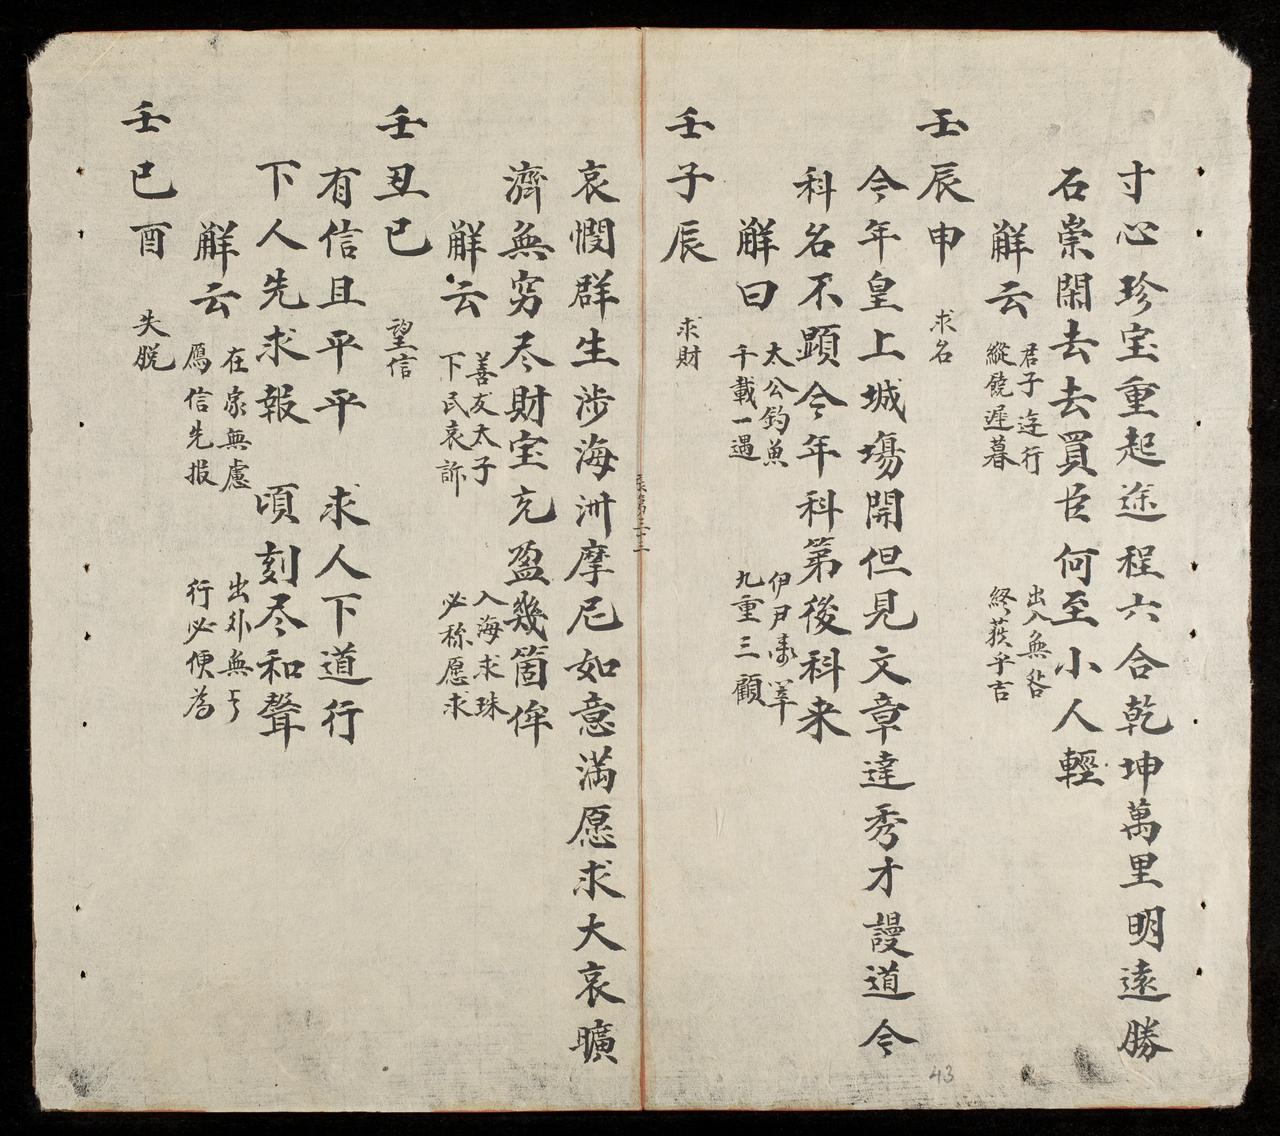 寸心珍宝重起途程六合乾坤萬里明遠勝
石崇閑去去買臣何至小人輕
解云
君子迬行
縱饒遲暮
出入無咎
終获乎吉
壬辰申
求名
今年皇上城塲開但見文章達秀才謾道今
科名不顕今年科第後科来
解曰
太公釣魚
千載一遇
伊尹
九重三顧
壬子辰
求財
哀憫群生涉海洲摩尼如意満愿求大哀曠
濟無穷尽財宝充盈幾箇侔
解云
善友太子
下民哀訴
入海求珠
必称愿求
壬丑巳
望信
有信且平平 求人下道行
下人先求報 頃刻尽和聲
解云
在家無慮
鴈信先报
出外無亏
行必便為
壬巳酉
失脱
43